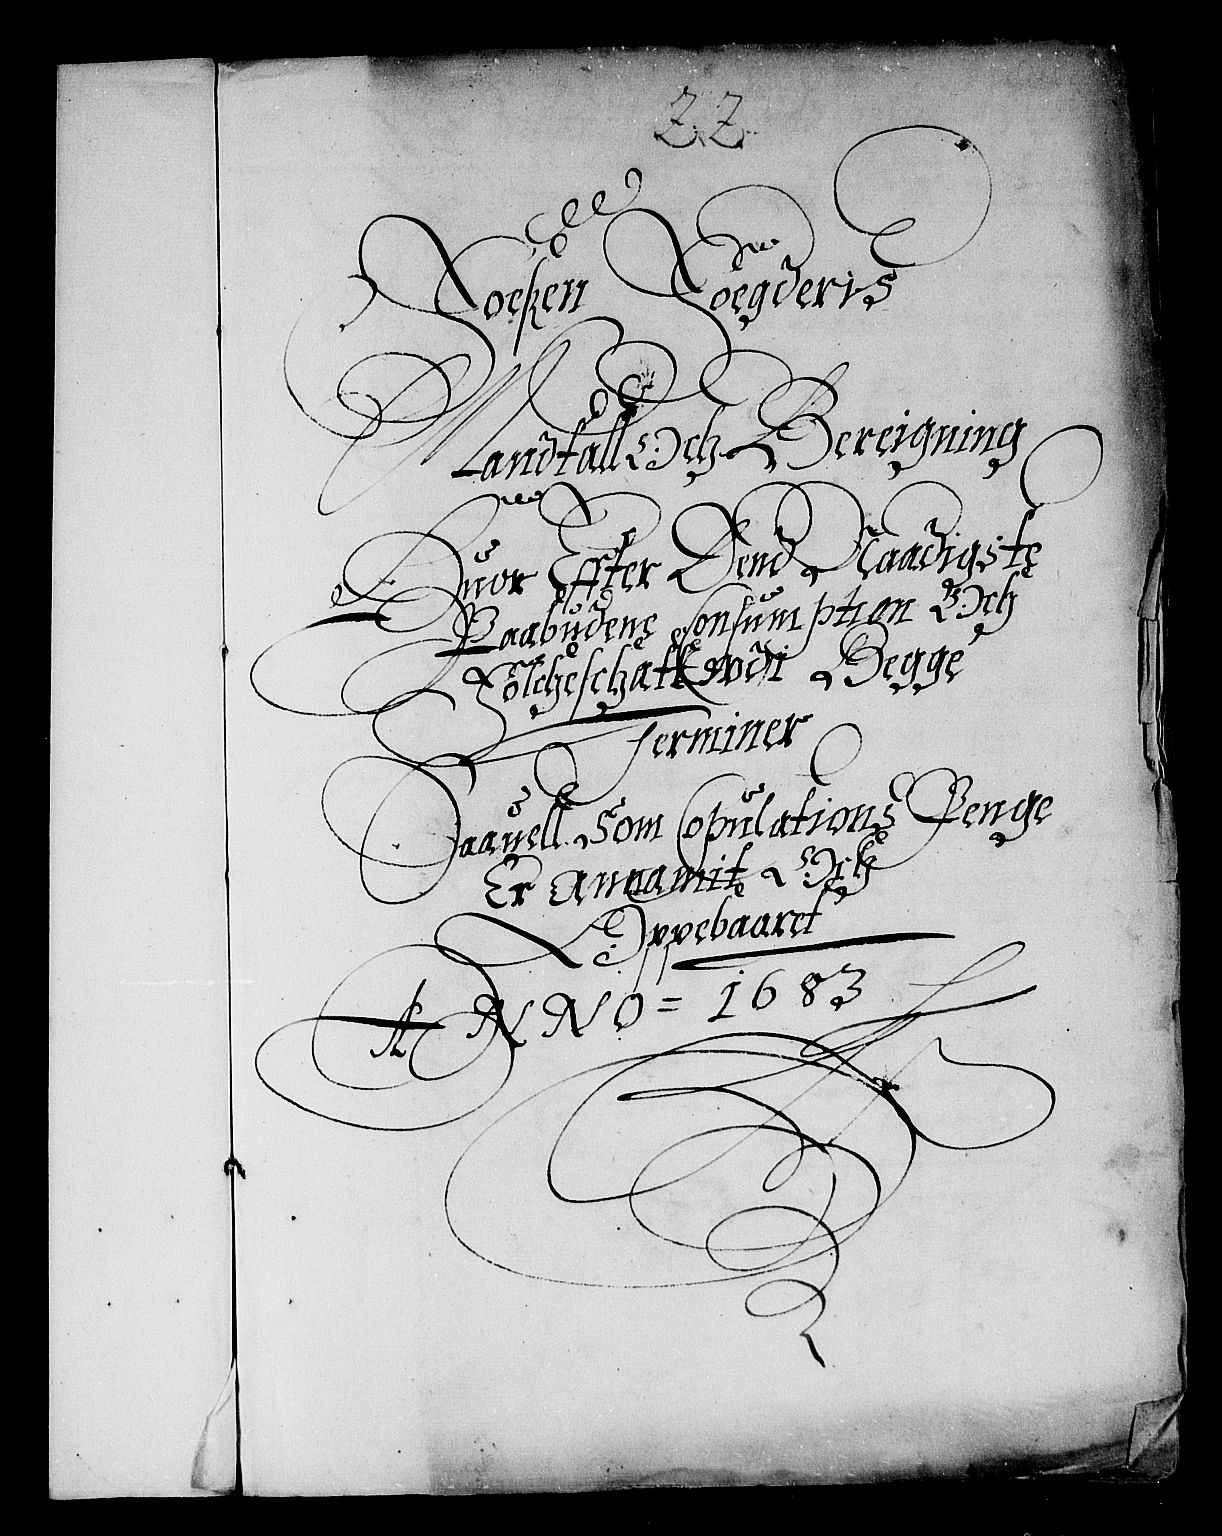 22
Foeßen Foegderis
Mandtall Och Bereigning
Huor Effter Dend Naadigste
Paabudene Consumption Och
Folcheschatt udi Begge
Terminer
Saauell Som Copulations Penge
Er Annamit Och
Oppebaaret
ANNO = 1683